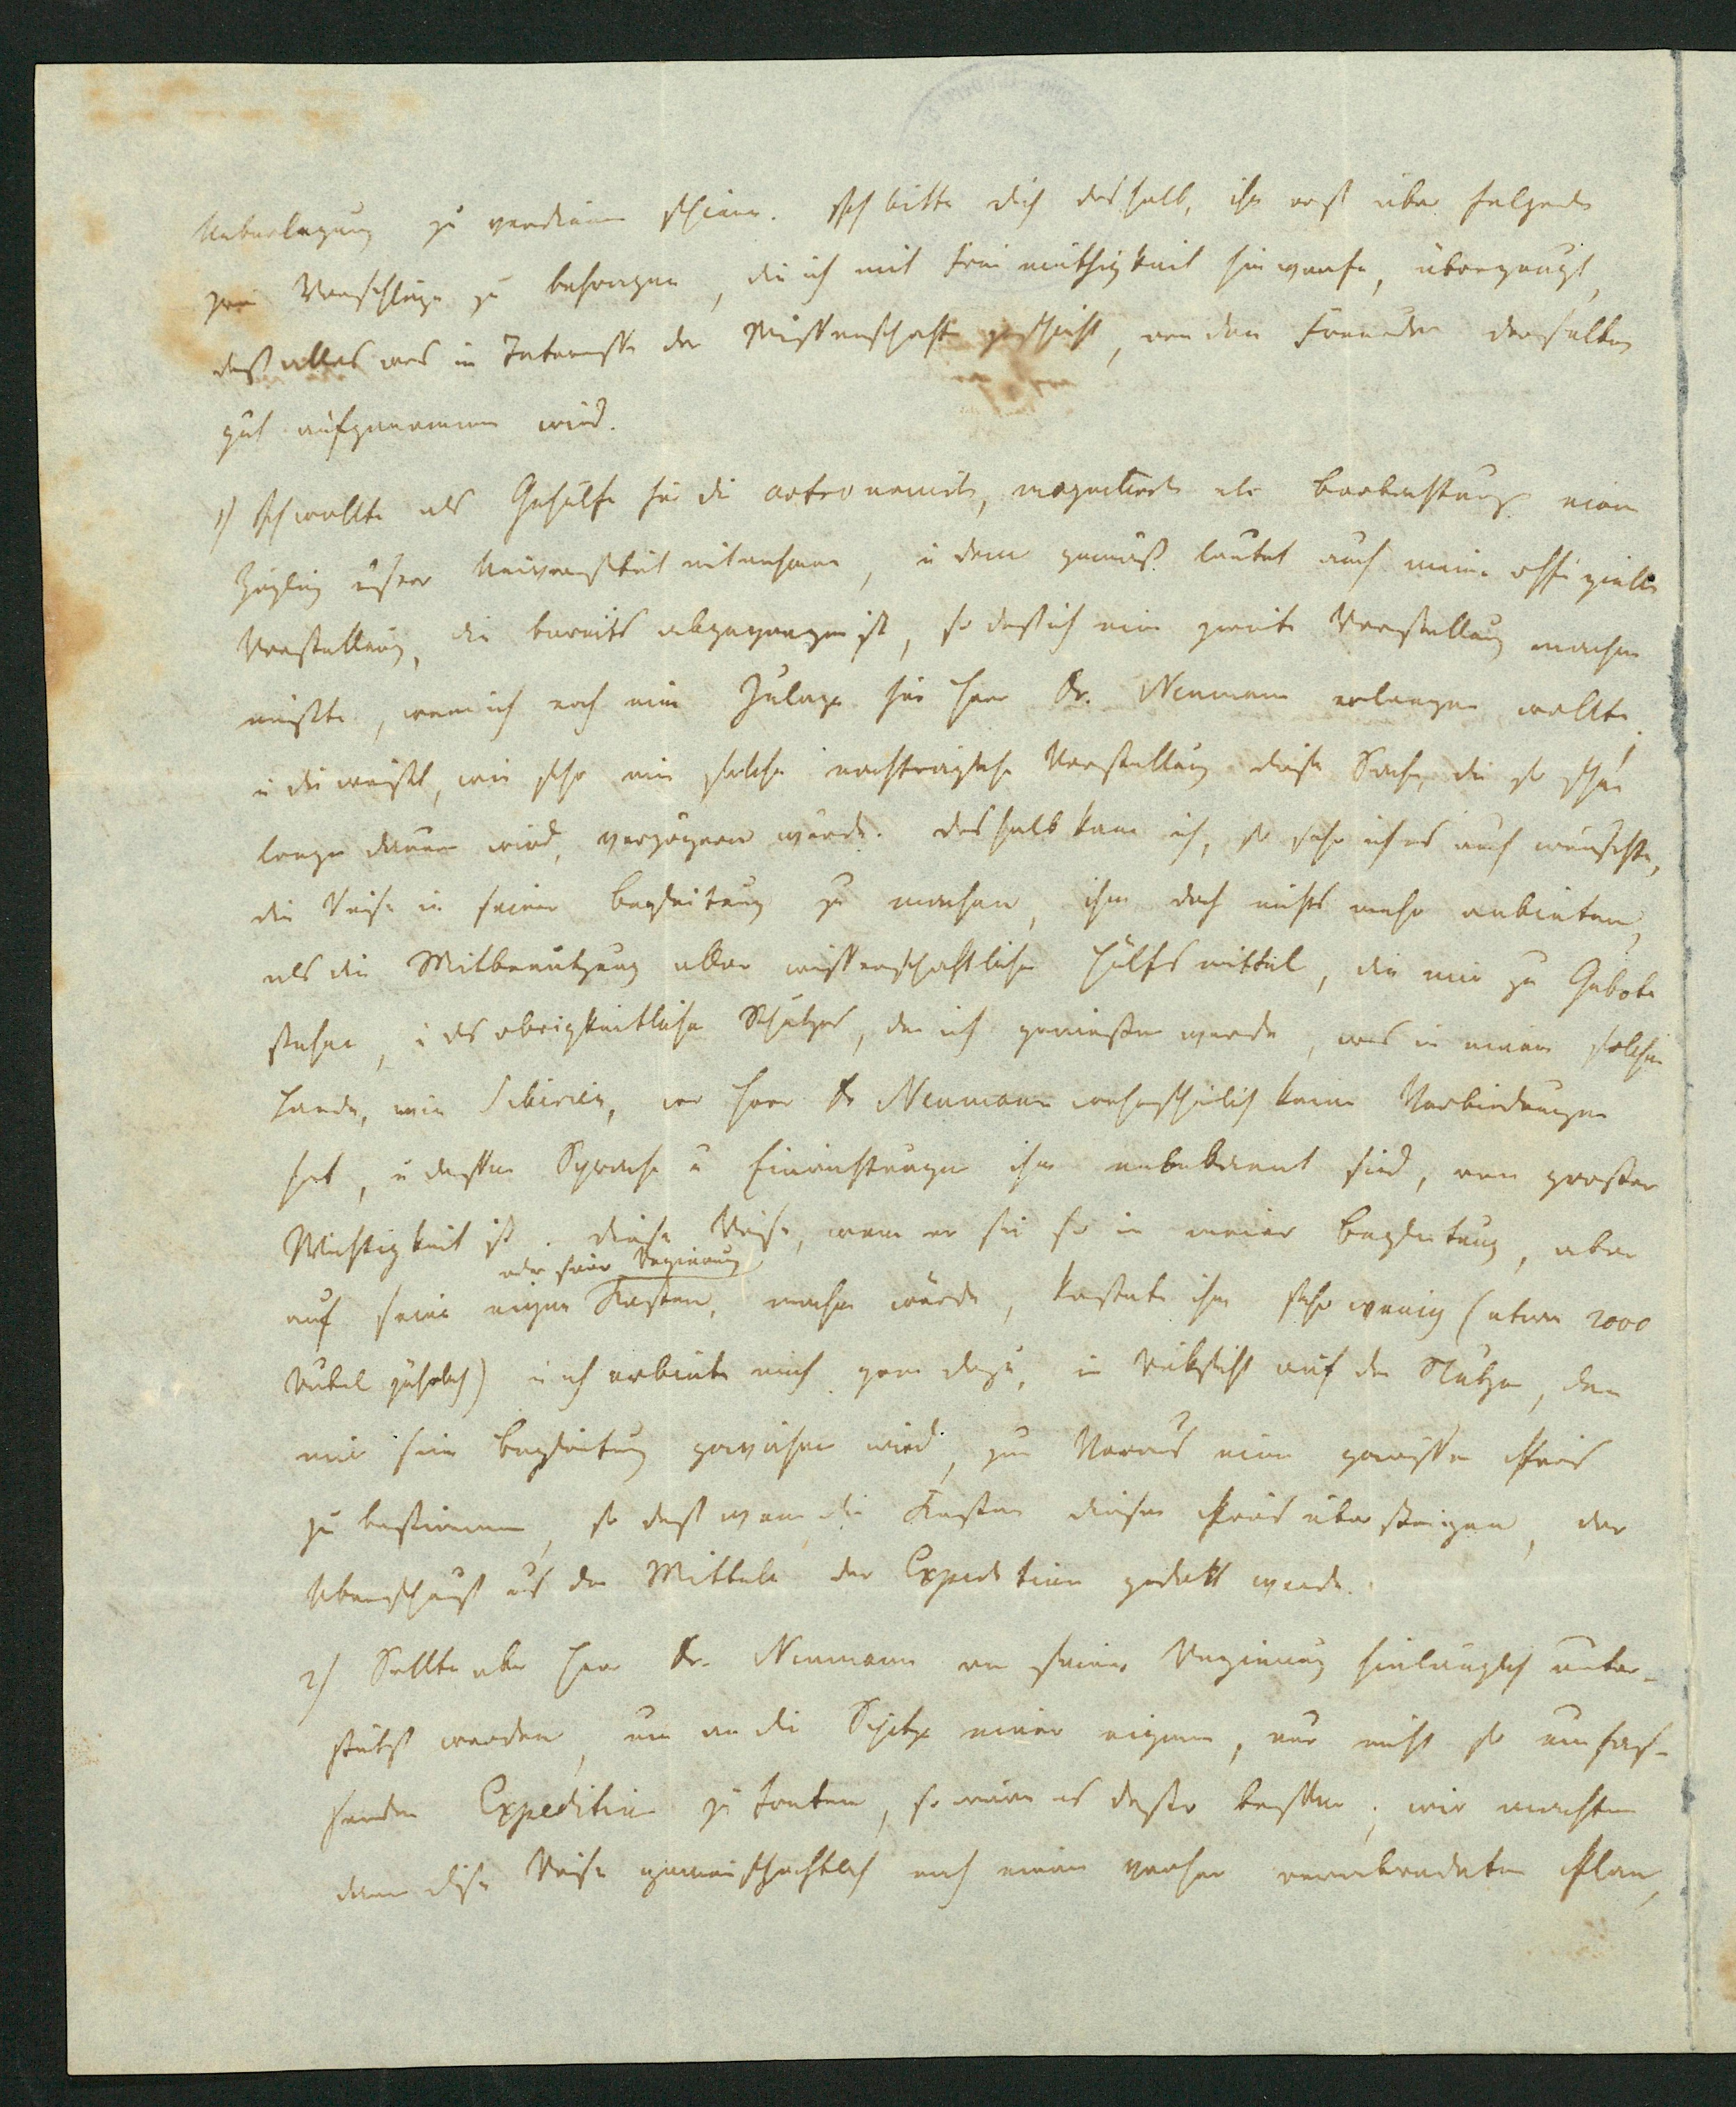 Ueberlegung zu verdienen scheinen. Ich bitte dich deshalb, ihn erst über folgende
zwei Vorschläge zu befragen, die ich mit Freimüthigkeit hinwerfe, überzeugt,
daß alles was im Interesse der Wissenschaft geschieht, von den Freunden derselben
gut aufgenommen wird.
1) Ich wollte als Gehülfe für die astronomisch, magnetisch etc Beobachtungen einen
Zögling unserer Universität mitnehmen, u dem gemäß lautet auch meine offizielle
Vorstellung, die bereits abgegangen ist, so daß ich eine zweite Vorstellung machen
müßte, wenn ich noch eine Zulage für Herrn Dr. Neumann erlangen wollte,
u du weißt, wie sehr eine solche nachträgliche Vorstellung diese Sache, die so schon
lange dauern wird, verzögern würde. Deshalb kann ich, so sehr ich es auch wünschte,
die Reise in seiner Begleitung zu machen, ihm doch nichts mehr anbieten,
als die Mitbenutzung aller wissenschaftlichen Hülfsmittel, die mir zu Gebote
stehen, u des obrigkeitlichen Schutzes, den ich genießen werde, was in einem solchen
Lande, wie Sibirien, wo Herr Dr Neumann wahrscheinlich keine Verbindungen
hat, u dessen Sprache u Einrichtungen ihm unbekannt sind, von großer
Wichtigkeit ist. Diese Reise, wenn er sie so in meiner Begleitung, aber
oder seiner Regierung
auf seine eigene Kosten, machen würde, kostete ihm sehr wenig (etwa 2000
Rubel jährlich) u ich erbiete mich gern dazu, in Rücksicht auf den Nutzen, den
mir seine Begleitung gewähren wird, zum Voraus einen gewissen Preis
zu bestimmen, so daß wenn die Kosten diesen Preis übersteigen, der
Ueberschuß aus den Mitteln der Expedition gedeckt werde.
2) Sollte aber Herr Dr. Neumann von seiner Regierung hinlänglich unter-
stützt werden, um an die Spitze einer eigenen, nur nicht so umfas-
senden Expedition zu treten, so wäre es desto besser; wir machten
dann diese Reise gemeinschaftlich nach einem vorher verabredeten Plan,